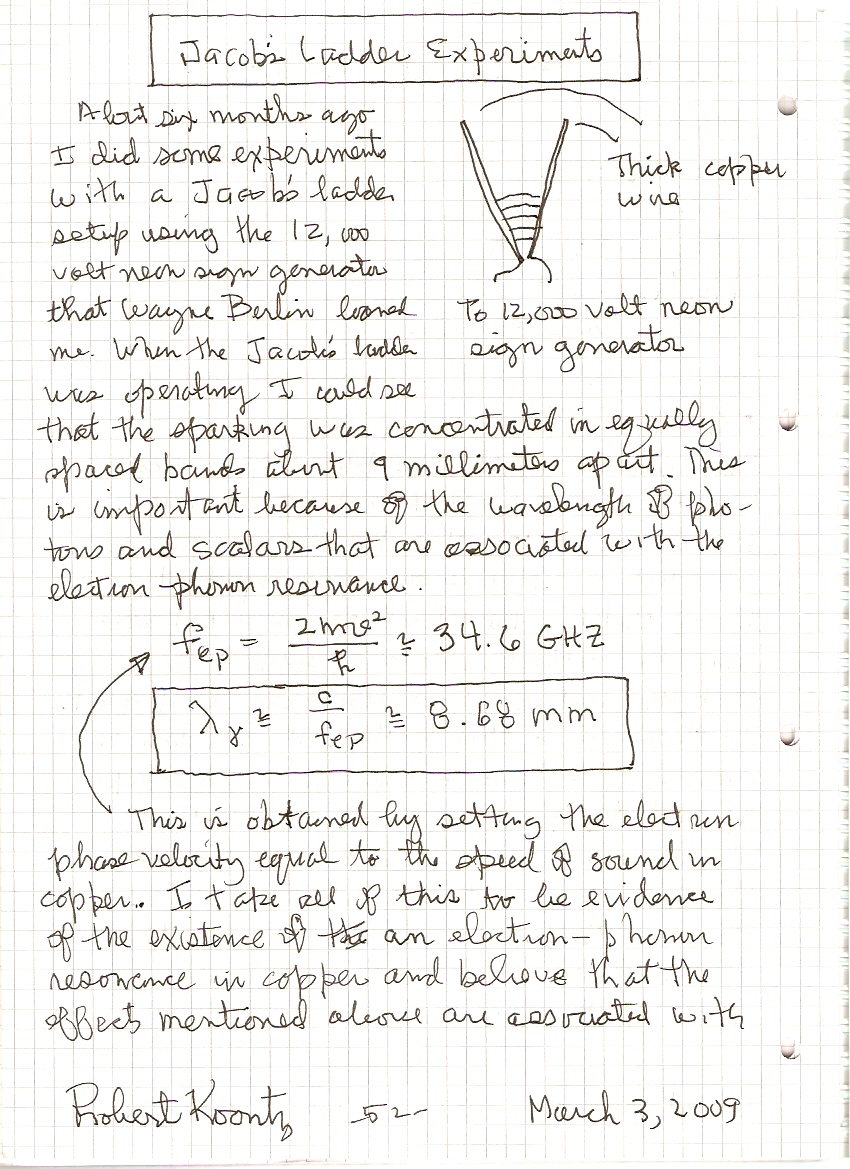 Jacob's Ladder Experiments
About six months ago
I did some experiments
with a Jacob's ladder
setup using the 12,000
volt neon sign generator
that Wayne Berlin loaned
me. When the Jacob's ladder
was operating I could see
Thick copper
wire
To 12,000 volt neon
sign generator
that the sparking was concentrated in equally
spaced bands about 9 millimeters apart. This
is important because of the wavelength of pho-
tons and scalars that are associated with the
electron-phonon resonance.
f_ep = 2mv²/ħ ≅ 34.6 GHZ
λ_γ ≅ c/f_ep ≅ 8.68 mm
This is obtained by setting the electron
phase velocity equal to the speed of sound in
copper. I take all of this to be evidence
of the existence of an electron-phonon
resonance in copper and believe that the
effects mentioned above are associated with
Robert Koontz -52- March 3, 2009